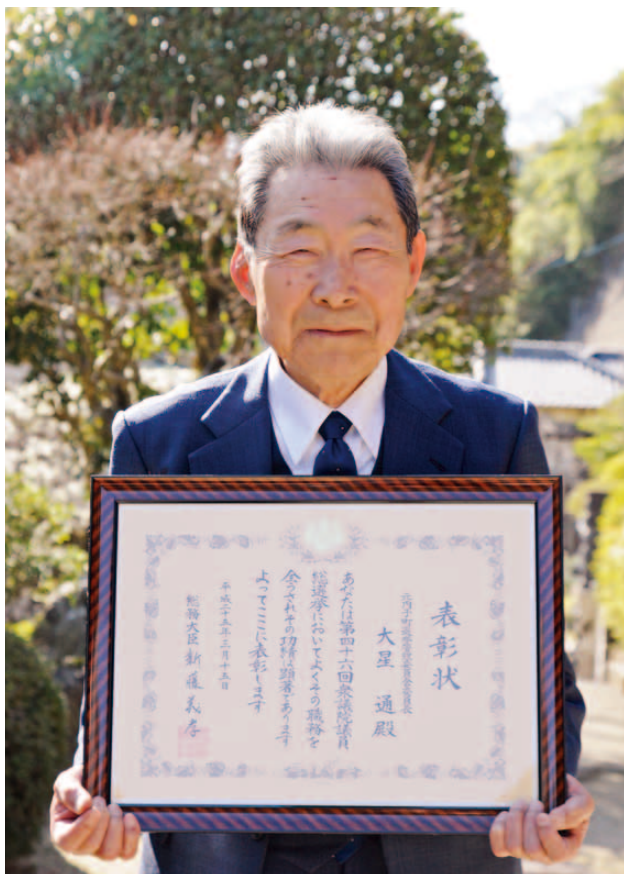 表彰状
元内子町選挙管理委員会委員長
大星 通 殿
あなたは第四十六回衆議院議員
総選挙においてよくその職務を
全うされその功績は顕著であります
よってここに表彰します
平成二十五年三月十五日
総務大臣 新藤義孝